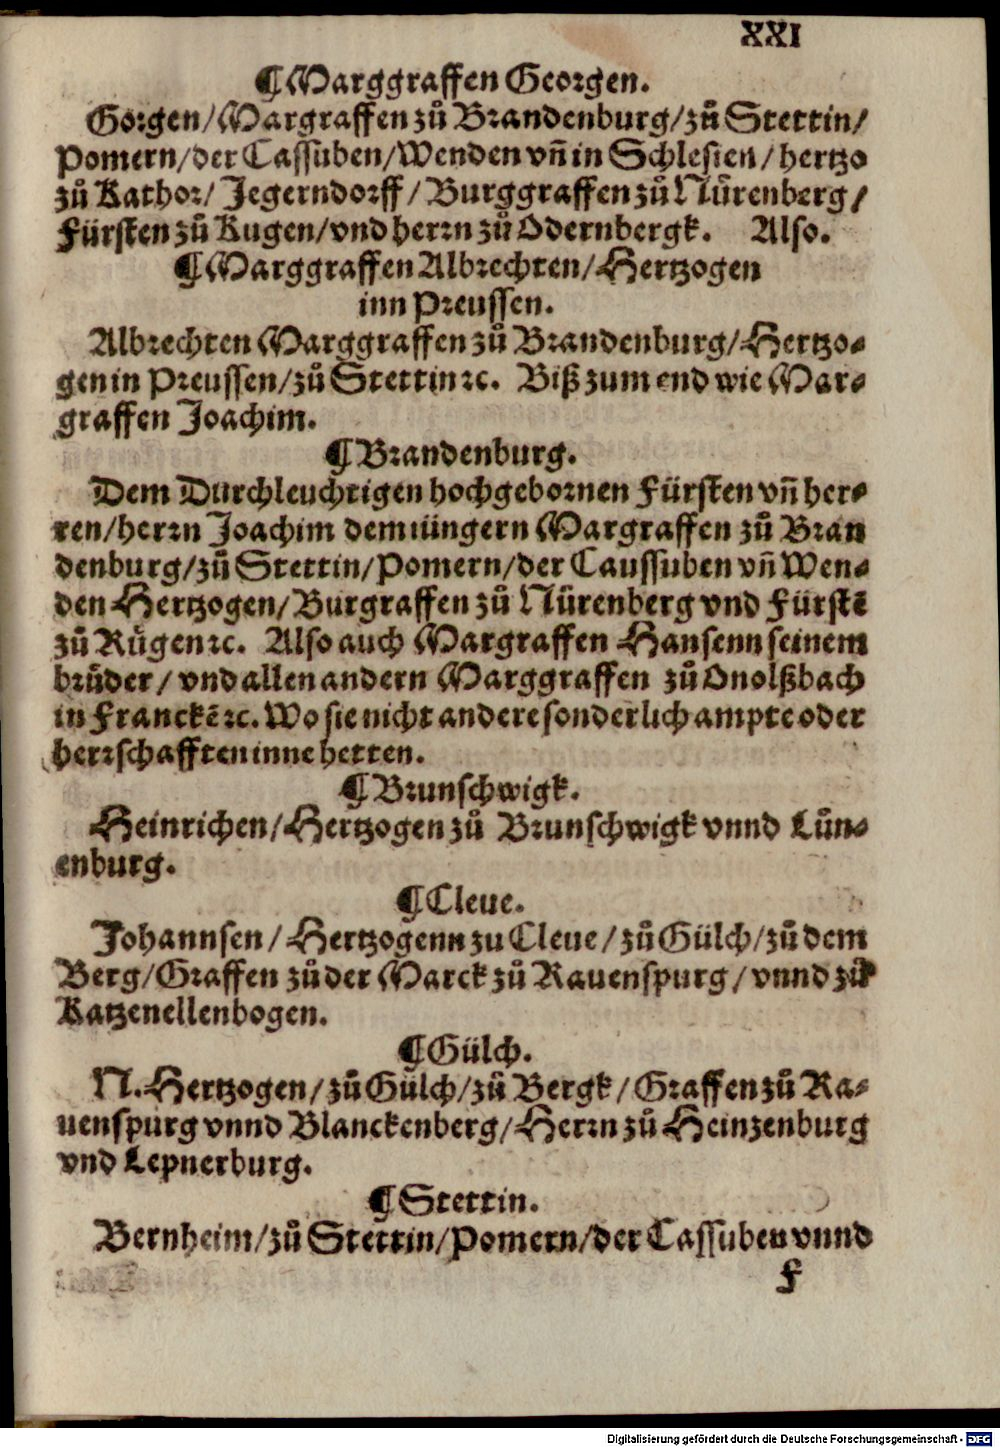 XXI
¶Marggraffen Georgen.
Gorgen/Margraffen zů Brandenburg/zů Stettin/
Pomern/der Cassuben/Wenden vñ in Schlesien/hertzo
zů Rathor/Jegerndorff/Burggraffen zů Nürenberg/
Fürsten zů Rugen/vnd herrn zů Odernbergk. Also.
¶Marggraffen Albrechten/Hertzogen
inn Preussen.
Albrechten Marggraffen zů Brandenburg/Hertzo⸗
gen in Preussen/zů Stettin ꝛc. Biß zum end wie Mar⸗
graffen Joachim.
¶Brandenburg.
Dem Durchleuchtigen hochgebornen Fürsten vñ her⸗
ren/herrn Joachim dem iüngern Margraffen zů Bran
denburg/zů Stettin/Pomern/der Caussuben vñ Wen⸗
den Hertzogen/Burgraffen zů Nürenberg vnd Fürstē
zů Rügen ꝛc. Also auch Margraffen Hansenn seinem
brůder/vnd allen andern Marggraffen zů Onolßbach
in Franckē ꝛc. Wo sie nicht andere sonderlich ampte oder
herrschafften inne hetten.
¶Brunschwigk.
Heinrichen/Hertzogen zů Brunschwigk vnnd Lün⸗
enburg.
¶Cleue.
Johannsen/Hertzogenn zu Cleue/zů Gülch/zů dem
Berg/Graffen zů der Marck zů Rauenspurg/vnnd zů
Katzenellenbogen.
¶Gülch.
N. Hertzogen/zů Gülch/zů Bergk/Graffen zů Ra⸗
uenspurg vnnd Blanckenberg/Herrn zů Heinzenburg
vnd Lepnerburg.
¶Stettin.
Bernheim/zů Stettin/Pomern/der Cassuben vnnd
F
Digitalisierung gefördert durch die Deutsche Forschungsgemeinschaft - DFG